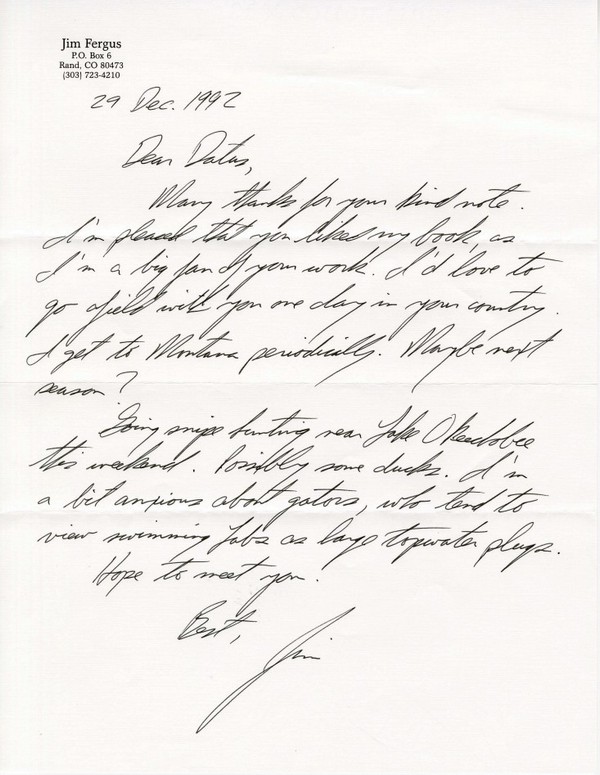 Jim Fergus
P.O. Box 6
Rand, CO 80473
(303) 723-4210
29 Dec. 1992
Dear Datus,
Many thanks for your kind note.
I'm pleased that you liked my book as
I'm a big fan of your work. I'd love to
go afield with you one day in your country.
I get to Montana periodically. Maybe next
season?
Going snipe hunting near Lake Okeechobee
this weekend. Possibly some ducks. I'm
a bit anxious about gators, who tend to
view swimming Labs as large topwater plugs.
Hope to meet you.
Best,
Jim